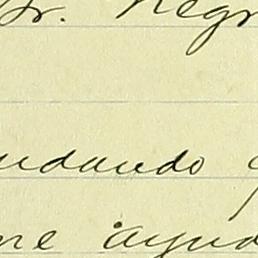 Sr. Negr
udando y
me ayud